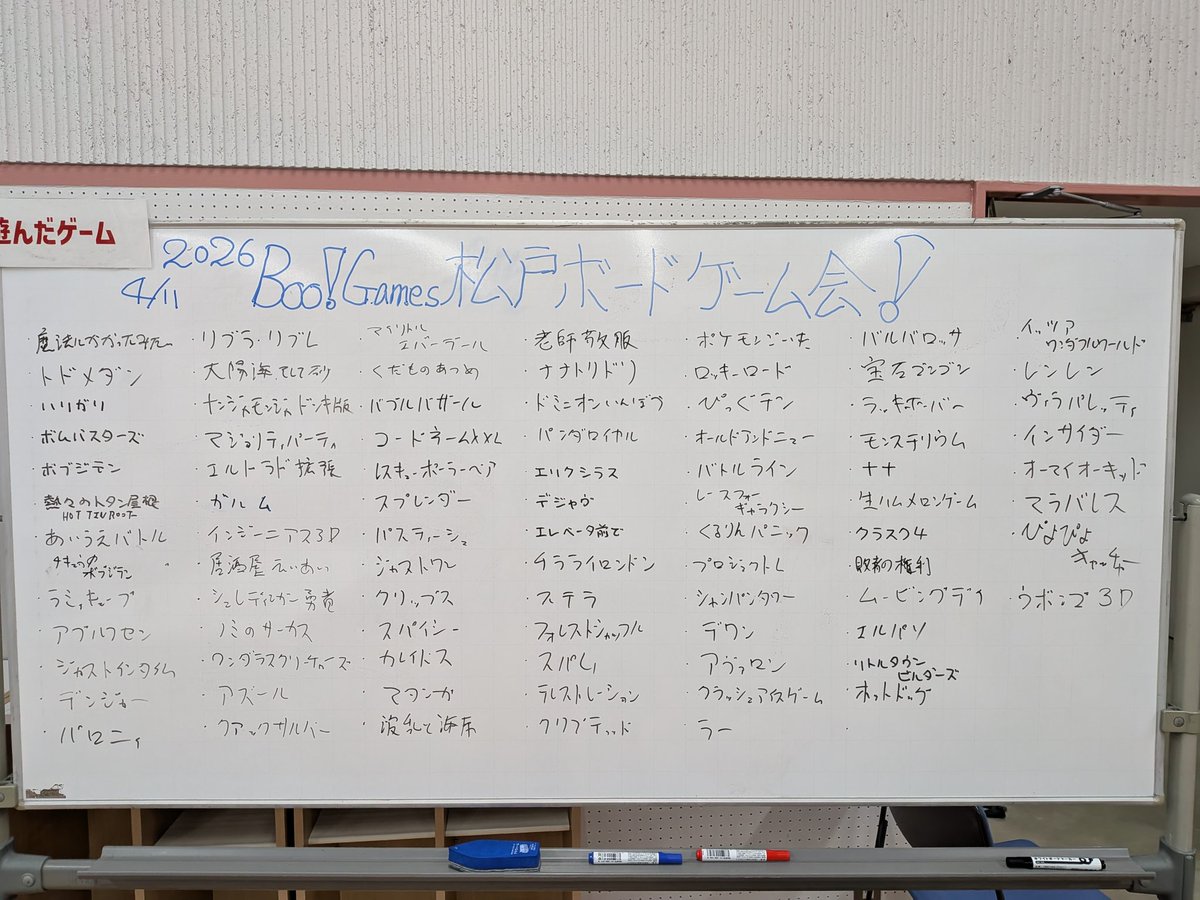 遊んだゲーム
2026
4/11
Boo!Games松戸ボードゲーム会!
・トドメダン
・ハリガリ
・ボムバスターズ
・ボブジテン
・熱々のトタン屋根
HOT TIN ROOF
・あいうえバトル
・ラミィキューブ
・アブルクセン
・ジャストインタイム
・デンジャー
・バロニィ
・リブラ・リブレ
・太陽海そして砂
・ナンジャモンジャドンキ版
・マジョリティパーティ
・エルドラド拡張
・ガルム
・インジーニアス3D
・ノミのサーカス
・ワンダラスクリーチャーズ
・アズール
・クアックサルバー
・マイリトル
エバーデール
・くだものあつめ
・バブルバザール
・コードネームXXL
・レスキューポーラーベア
・スプレンダー
・パスティーシュ
・ジャストワン
・クリップス
・スパイシー
・カレイドス
・マタンガ
・老師敬服
・ナナトリドリ
・ドミニオンいんぼう
・パンダロイヤル
・エリクシラス
・デジャヴ
・エレベータ前で
・チラライロンドン
・ステラ
・フォレストシャッフル
・スパイ
・テレストレーション
・クリプティッド
・ロッキーロード
・ぴっぐテン
・オールドアンドニュー
・バトルライン
・レースフォー
ギャラクシー
・くるりんパニック
・プロジェクトL
・シャンパンタワー
・デワン
・アヴァロン
・クラッシュアイスゲーム
・ラー
・バルバロッサ
・宝石ブンブン
・モンステリウム
・ナナ
・生ハムメロンゲーム
・クラスク4
・敗者の権利
・ムービングデイ
・エルパソ
・リトルタウン
ビルダーズ
・ホットドッグ
・イッツア
ワンダフルワールド
・レンレン
・ヴィラパレッティ
・インサイダー
・オーマイオーキッド
・マラバレス
・ぴよぴよ
キャッチャー
・ウボンゴ3D